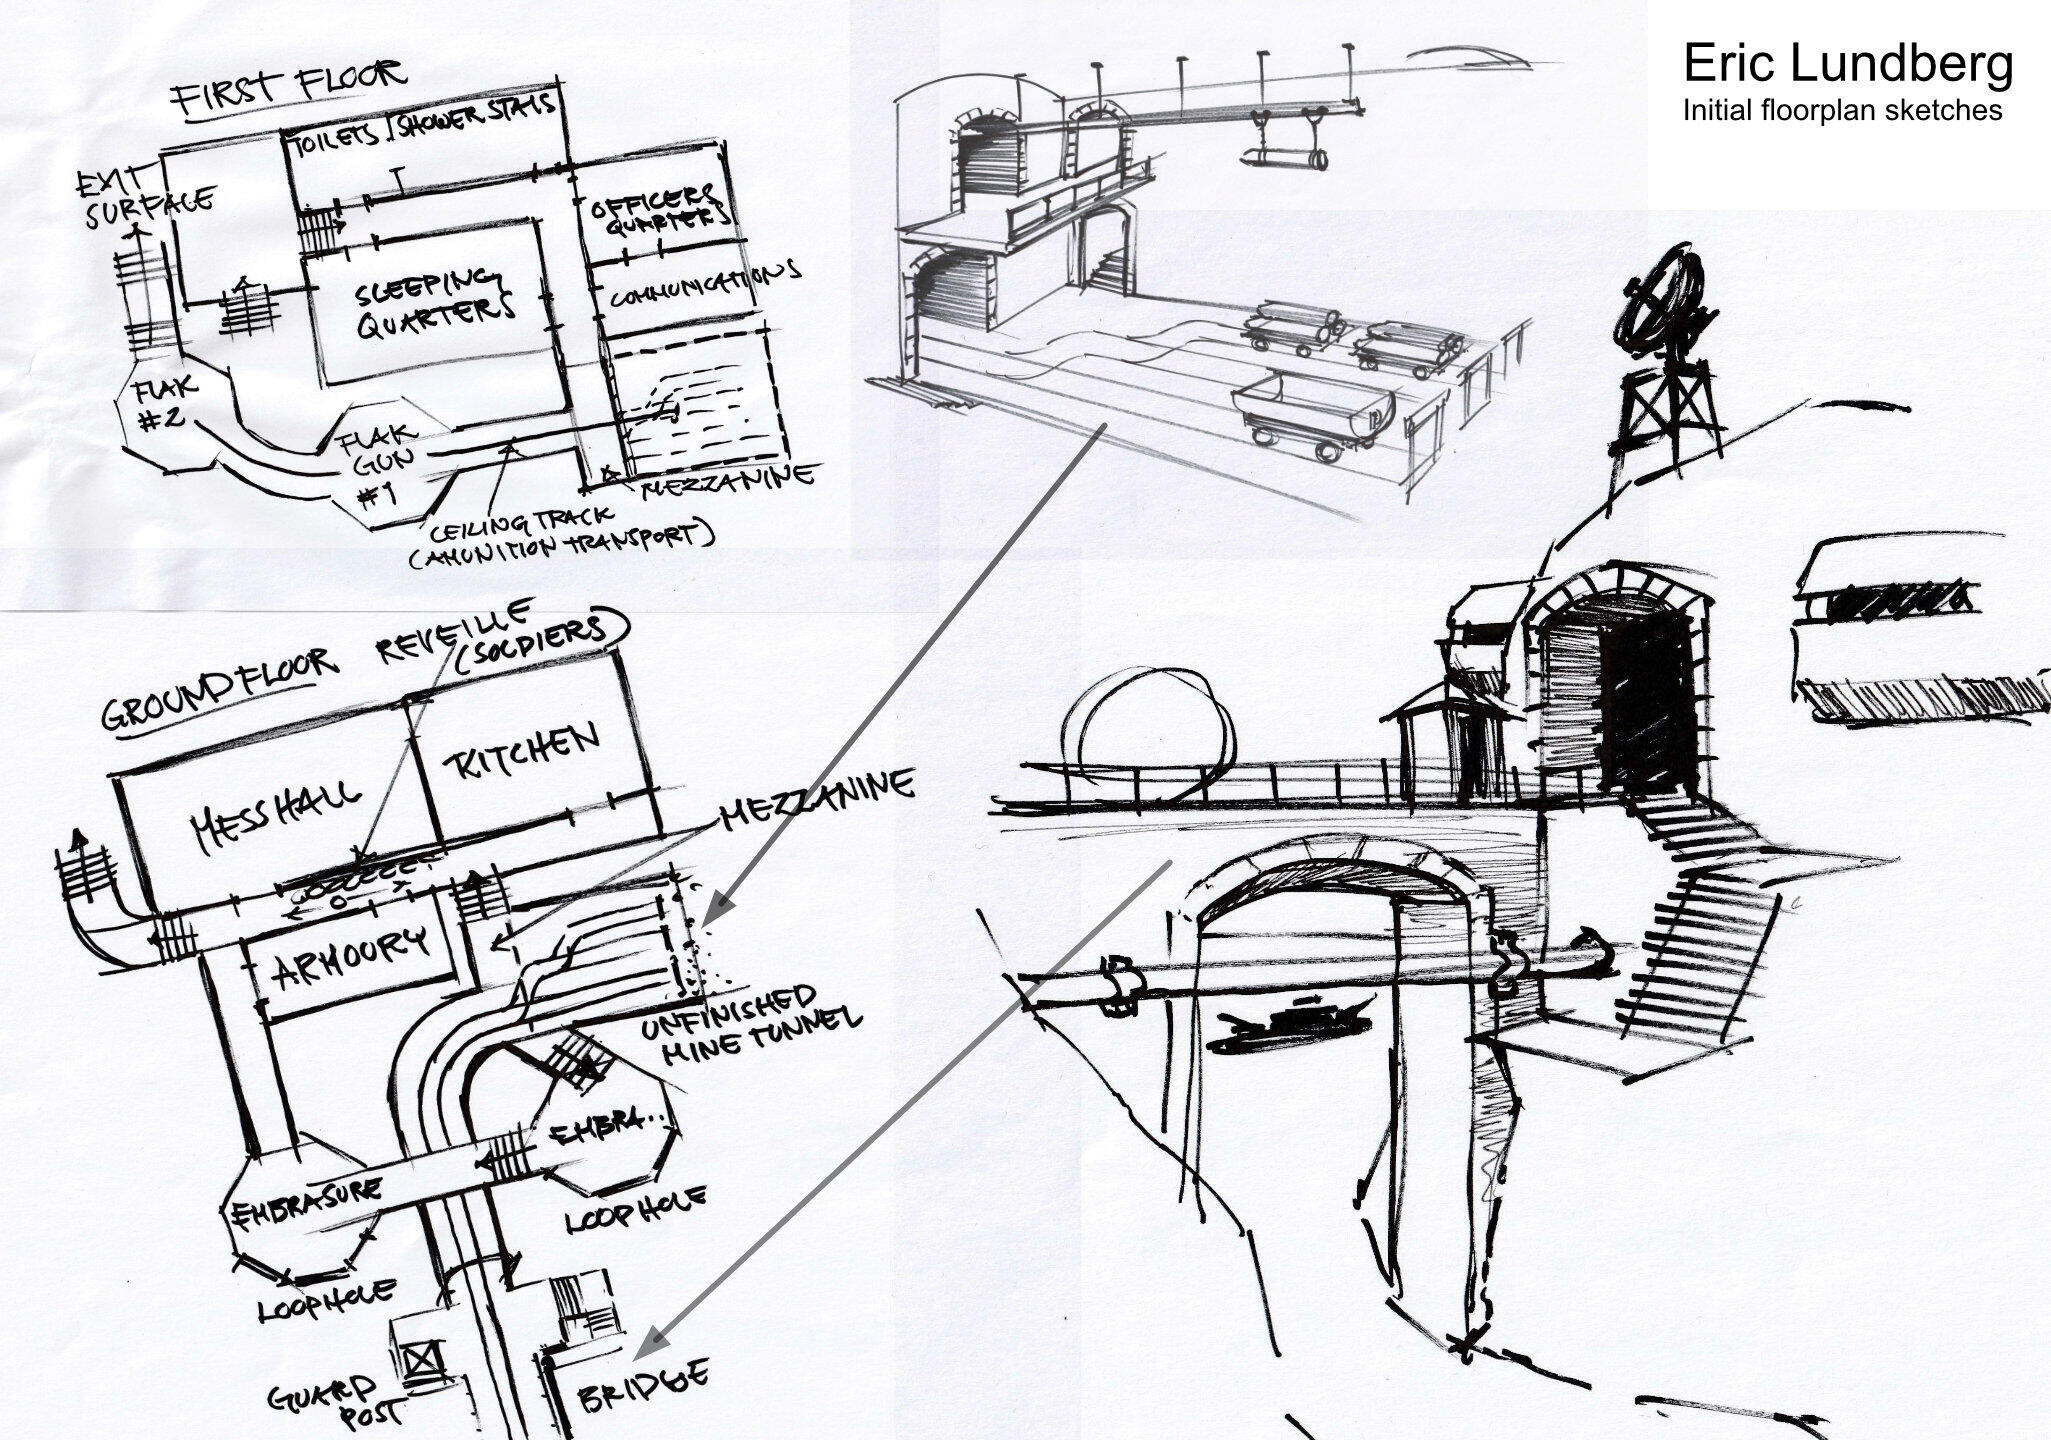 Eric Lundberg
Initial floorplan sketches
FIRST FLOOR
TOILETS / SHOWER STALS
EXIT
SURFACE
OFFICERS
QUARTERS
SLEEPING
QUARTERS
COMMUNICATIONS
FLAK
#2
FLAK
GUN
#1
MEZZANINE
CEILING TRACK
(AMUNITION TRANSPORT)
GROUND FLOOR
REVEILLE
(SOLDIERS)
MESS HALL
KITCHEN
MEZZANINE
ARMOURY
UNFINISHED
MINE TUNNEL
EMBRA...
EMBRASURE
LOOPHOLE
LOOPHOLE
GUARD
POST
BRIDGE